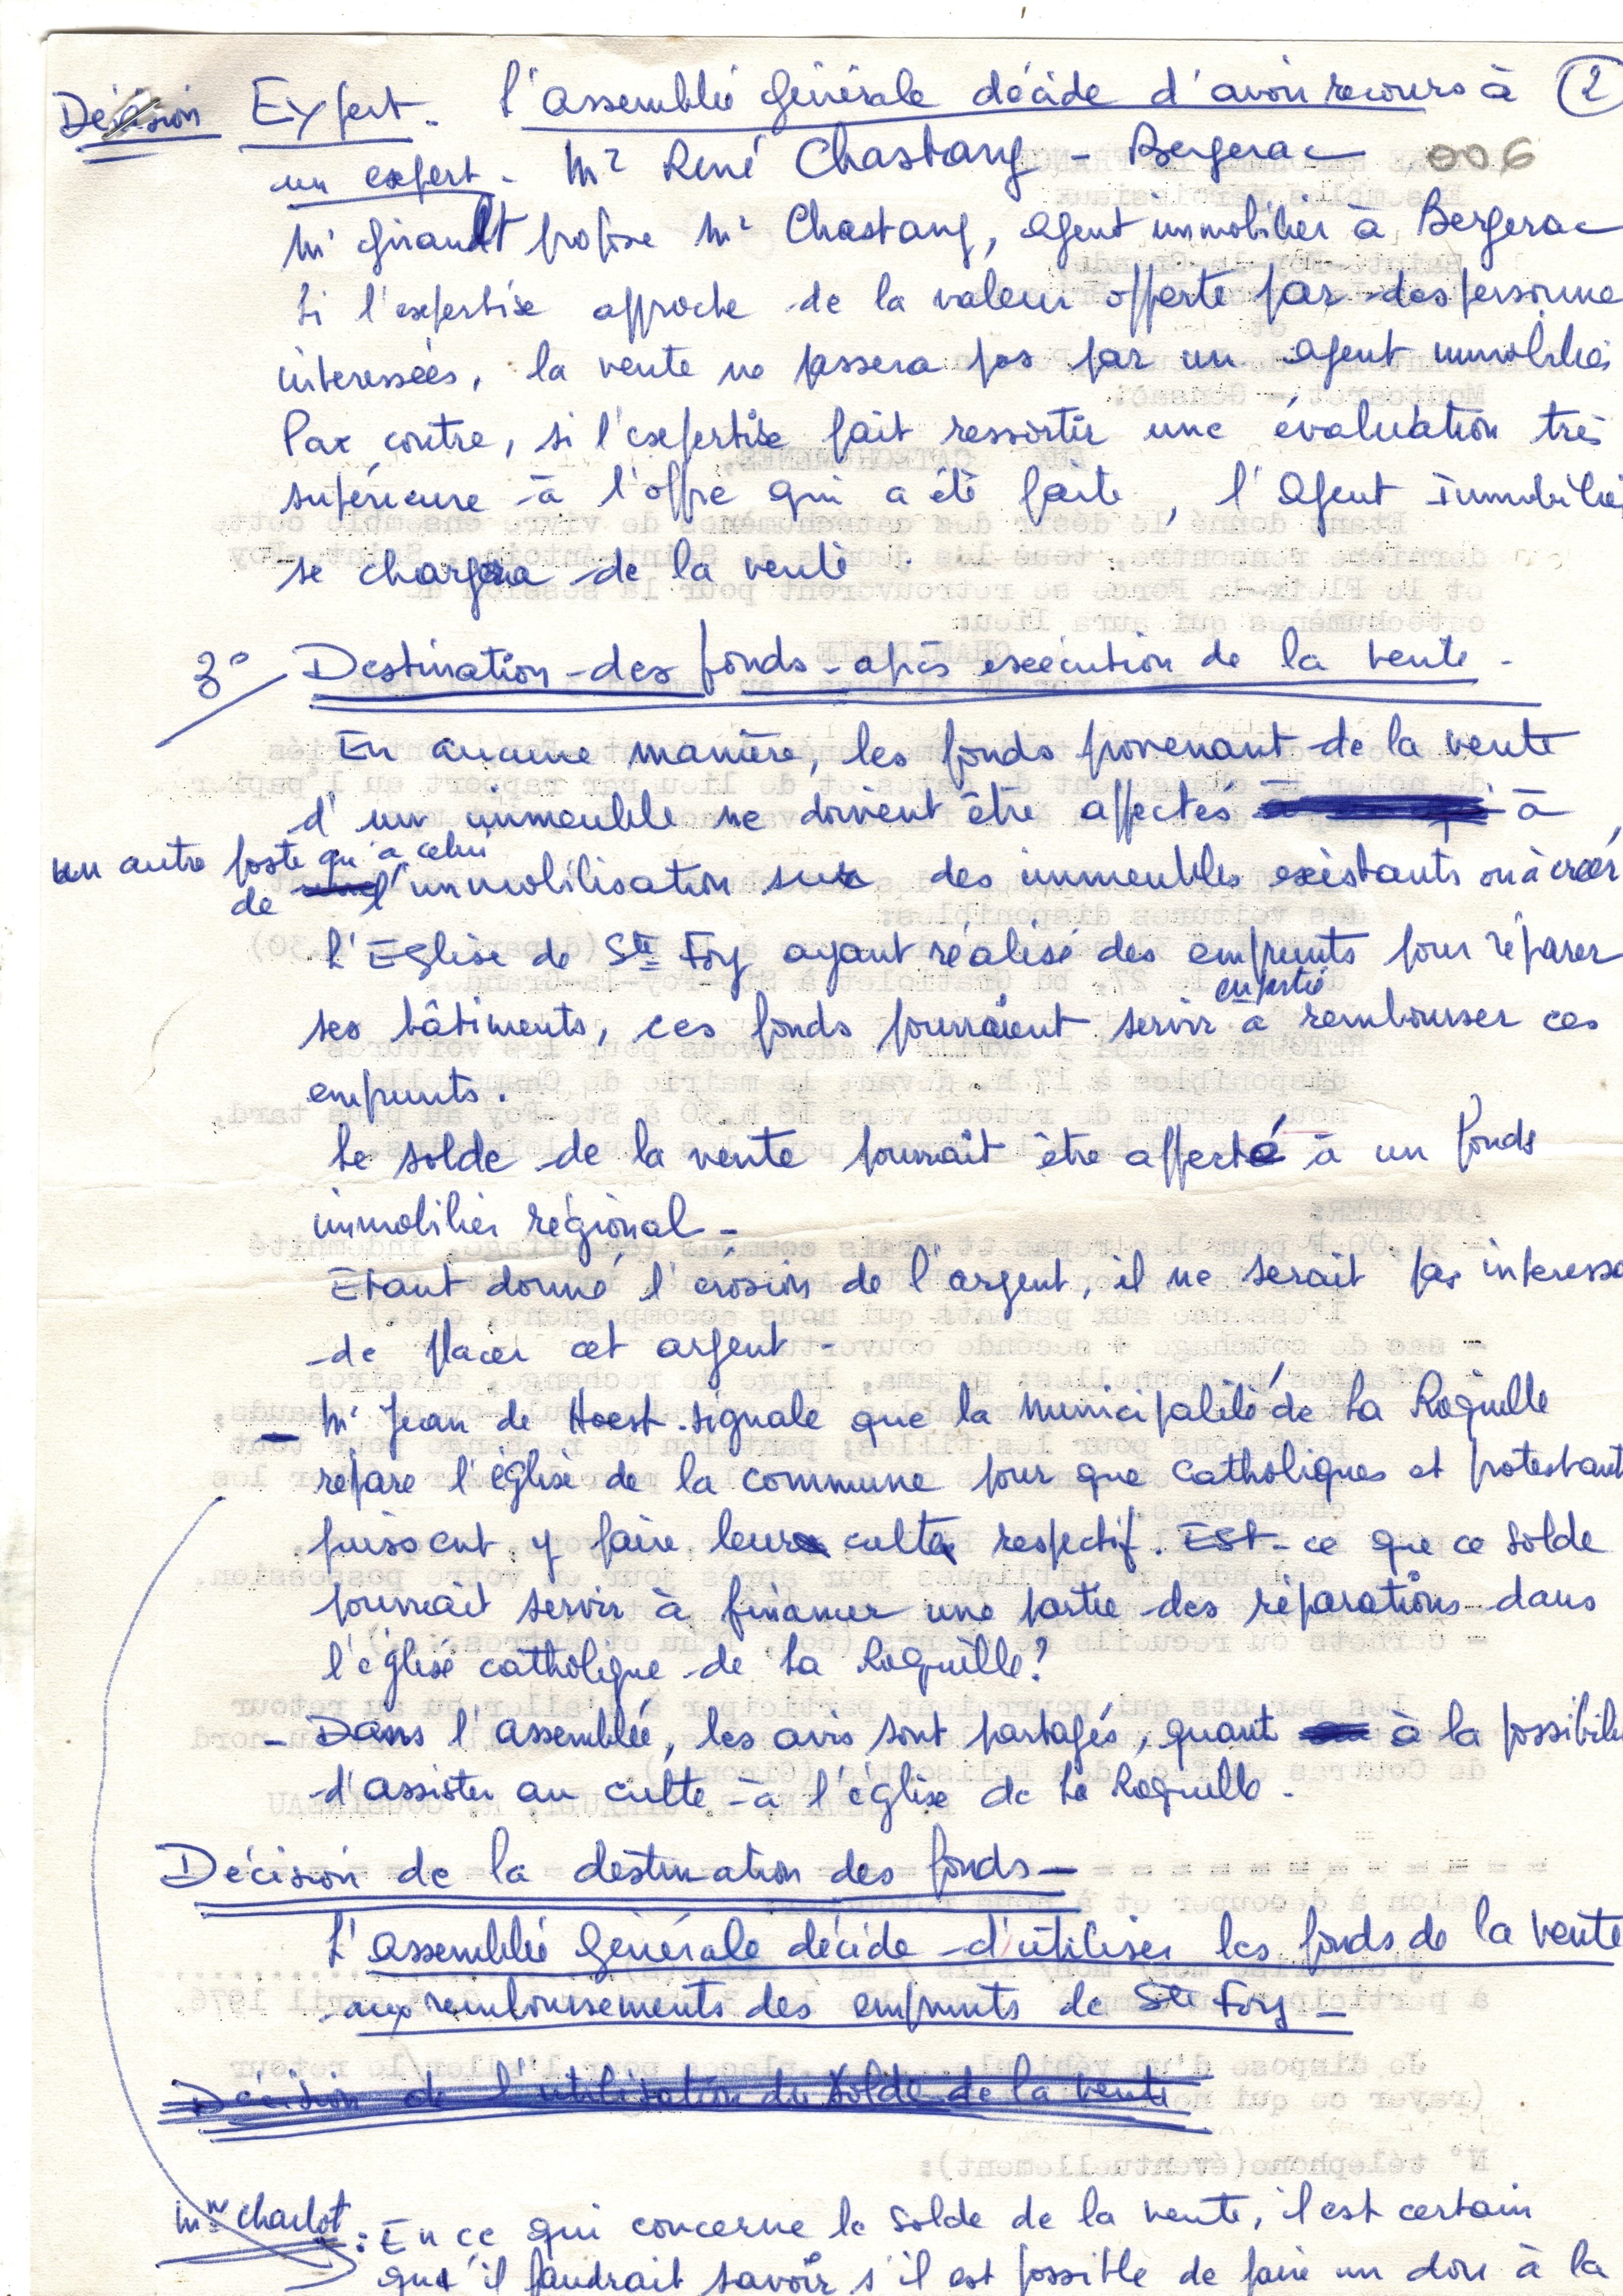 Décision Expert. l'assemblée générale décide d'avoir recours à 2
un expert. Mr René Chastang - Bergerac 006
Mr Girault propose Mr Chastang, agent immobilier à Bergerac
Si l'expertise approche de la valeur offerte par des personne
intéressées, la vente ne passera pas par un agent immobilier
Par contre, si l'expertise fait ressortir une évaluation très
supérieure à l'offre qui a été faite, l'Agent Immobilier
se chargera de la vente
3° Destination des fonds après exécution de la vente -
En aucune manière, les fonds provenant de la vente
d'un immeuble ne doivent être affectés à
un autre poste qu'à celui
de l'immobilisation sur des immeubles existants ou à créer
L'Eglise de Ste Foy ayant réalisé des emprunts pour réparer
en partie
ses bâtiments, ces fonds pourraient servir à rembourser ces
emprunts.
Le solde de la vente pourrait être affecté à un fonds
immobilier régional -
Etant donné l'érosion de l'argent, il ne serait pas interessa
de placer cet argent -
- Mr Jean de Hoest signale que la municipalité de La Roquille
répare l'église de la commune pour que catholiques et protestant
puissent y faire leur culte respectif. Est-ce que ce solde
pourrait servir à financer une partie des réparations dans
l'église catholique de La Roquille?
- Dans l'assemblée, les avis sont partagés, quant à la possibili
d'assister au culte à l'église de La Roquille -
Décision de la destination des fonds -
L'assemblée Générale décide d'utiliser les fonds de la vente
aux remboursements des emprunts de Ste Foy -
Décision de l'utilisation du solde de la vente
Mr Charlot : En ce qui concerne le solde de la vente, il est certain
qu'il faudrait savoir s'il est possible de faire un don à la